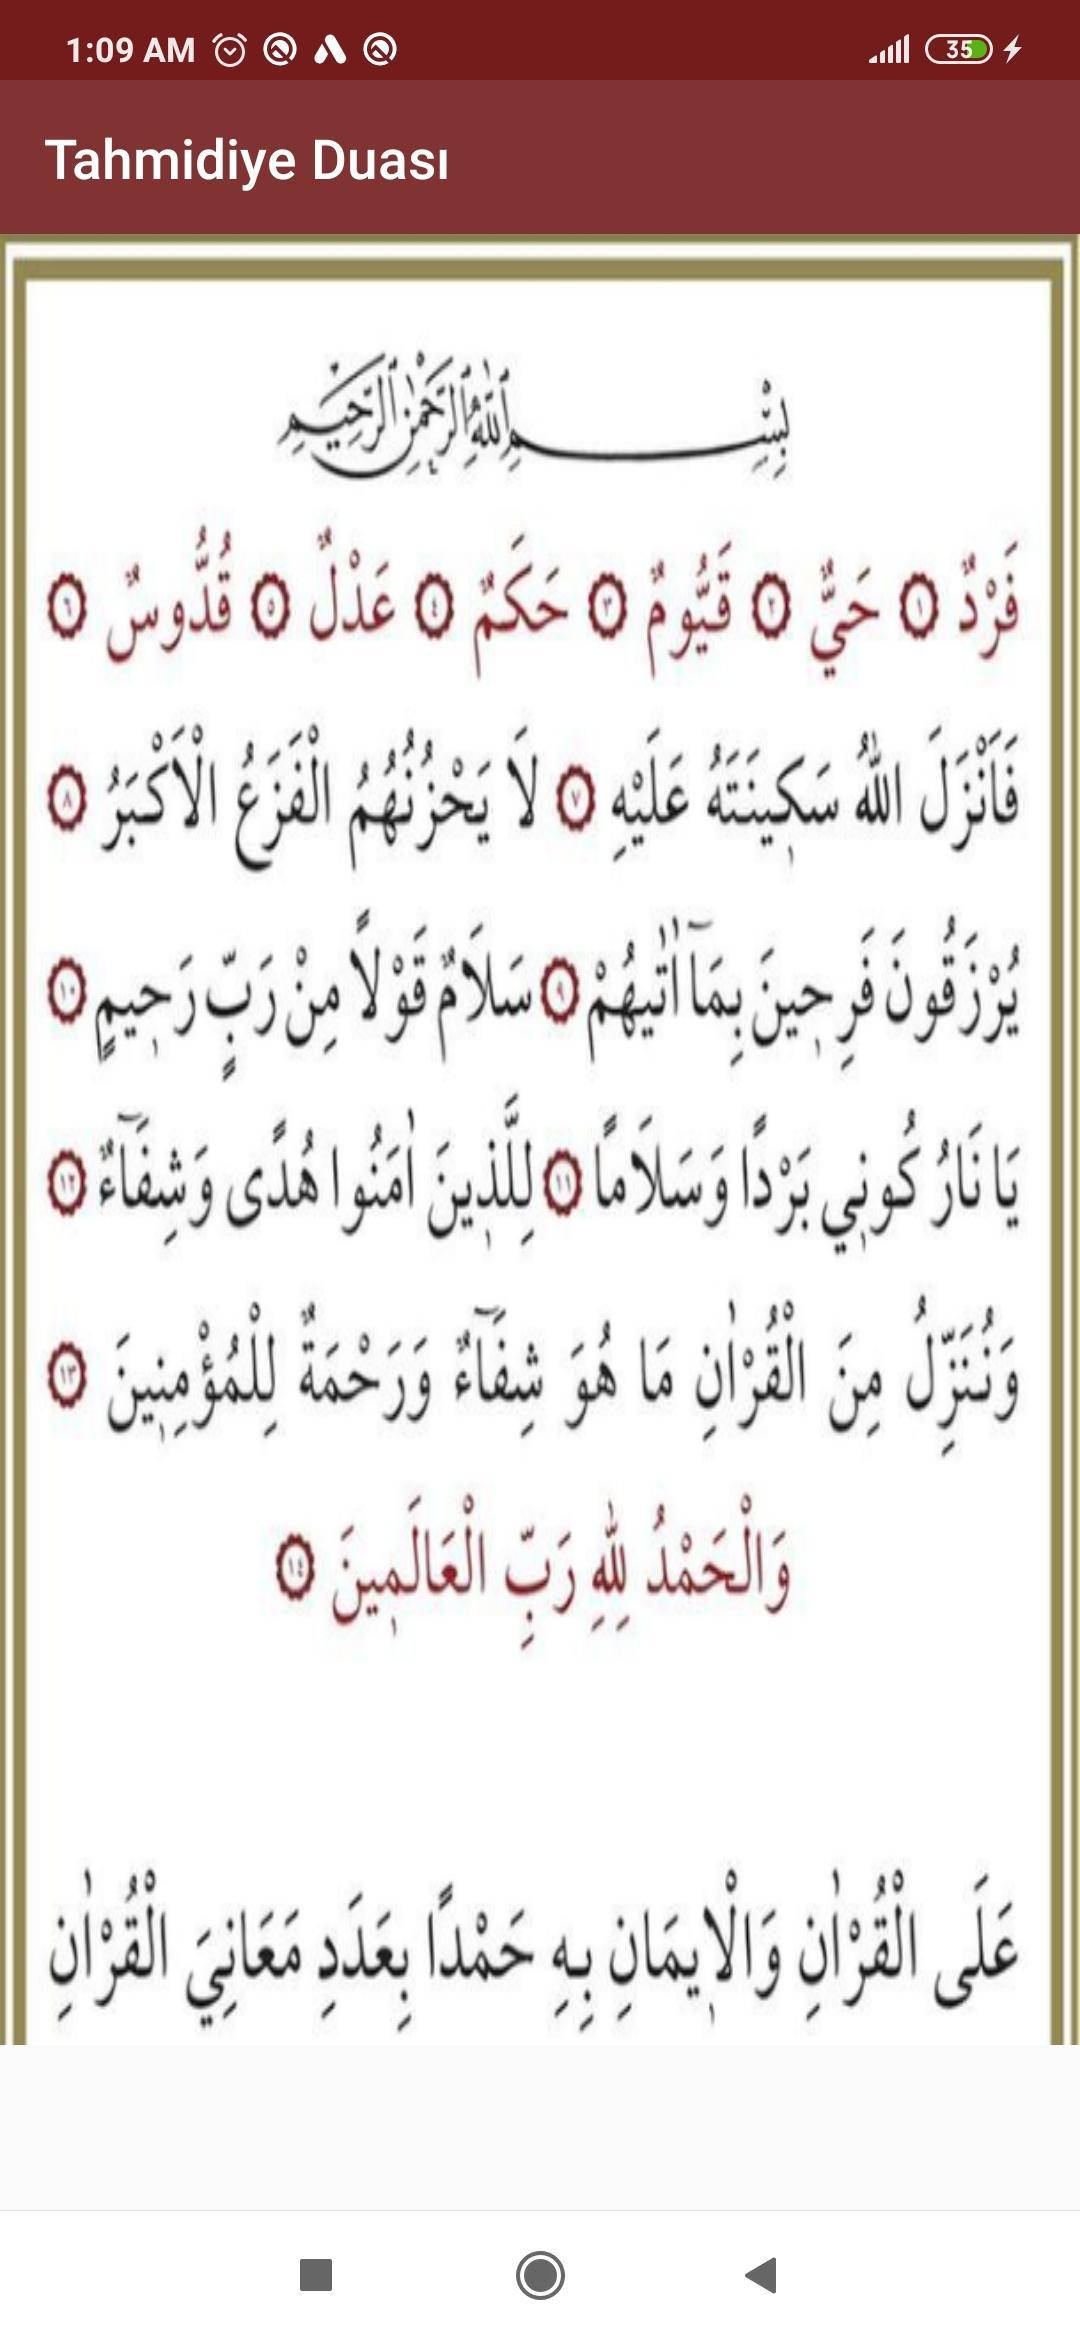 1:09 AM
35
Tahmidiye Duası
بِسْمِ اللّٰهِ الرَّحْمٰنِ الرَّحِيمِ
فَرْدٌ ﴿١﴾ حَيٌّ ﴿٢﴾ قَيُّومٌ ﴿٣﴾ حَكَمٌ ﴿٤﴾ عَدْلٌ ﴿٥﴾ قُدُّوسٌ ﴿٦﴾
فَاَنْزَلَ اللّٰهُ سَكِينَتَهُ عَلَيْهِ ﴿٧﴾ لَا يَحْزُنُهُمُ الْفَزَعُ الْاَكْبَرُ ﴿٨﴾
يُرْزَقُونَ فَرِحِينَ بِمَٓا اٰتٰيهُمْ ﴿٩﴾ سَلَامٌ قَوْلًا مِنْ رَبٍّ رَحِيمٍ ﴿١٠﴾
يَا نَارُ كُونِي بَرْدًا وَسَلَامًا ﴿١١﴾ لِلَّذِينَ اٰمَنُوا هُدًى وَشِفَٓاءٌ ﴿١٢﴾
وَنُنَزِّلُ مِنَ الْقُرْاٰنِ مَا هُوَ شِفَٓاءٌ وَرَحْمَةٌ لِلْمُؤْمِنِينَ ﴿١٣﴾
وَالْحَمْدُ لِلّٰهِ رَبِّ الْعَالَمِينَ ﴿١٤﴾
عَلَى الْقُرْاٰنِ وَالْاِيمَانِ بِهِ حَمْدًا بِعَدَدِ مَعَانِيَ الْقُرْاٰنِ